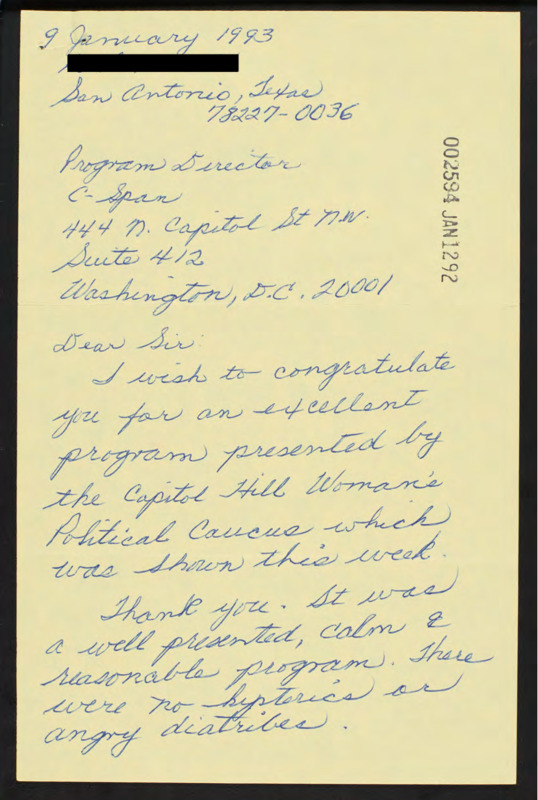 9 January 1993
San Antonio, Texas
78227-0036
002594 JAN1292
Program Director
C-Span
444 N. Capitol St N.W.
Suite 412
Washington, D.C. 20001
Dear Sir:
I wish to congratulate
you for an excellent
program presented by
the Capitol Hill Woman's
Political Caucus which
was shown this week.
Thank you. It was
a well presented, calm &
reasonable program. There
were no hysterics or
angry diatribes.